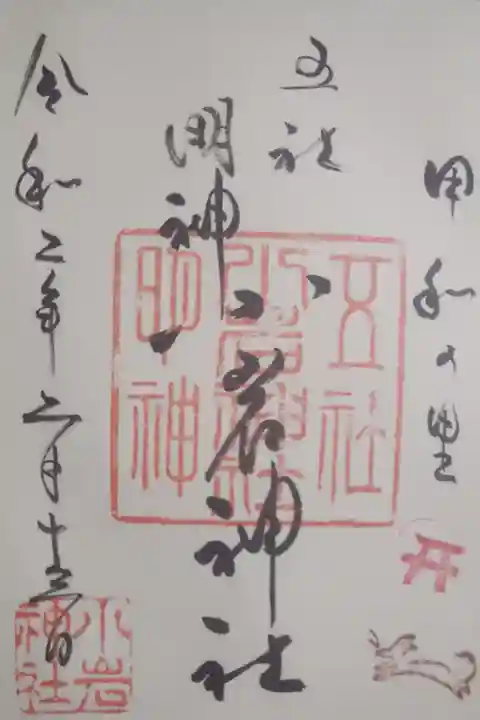 甲和の里
五社
明神
小岩神社
令和二年 月十 日
五社
小岩神社
明神
小岩
神社